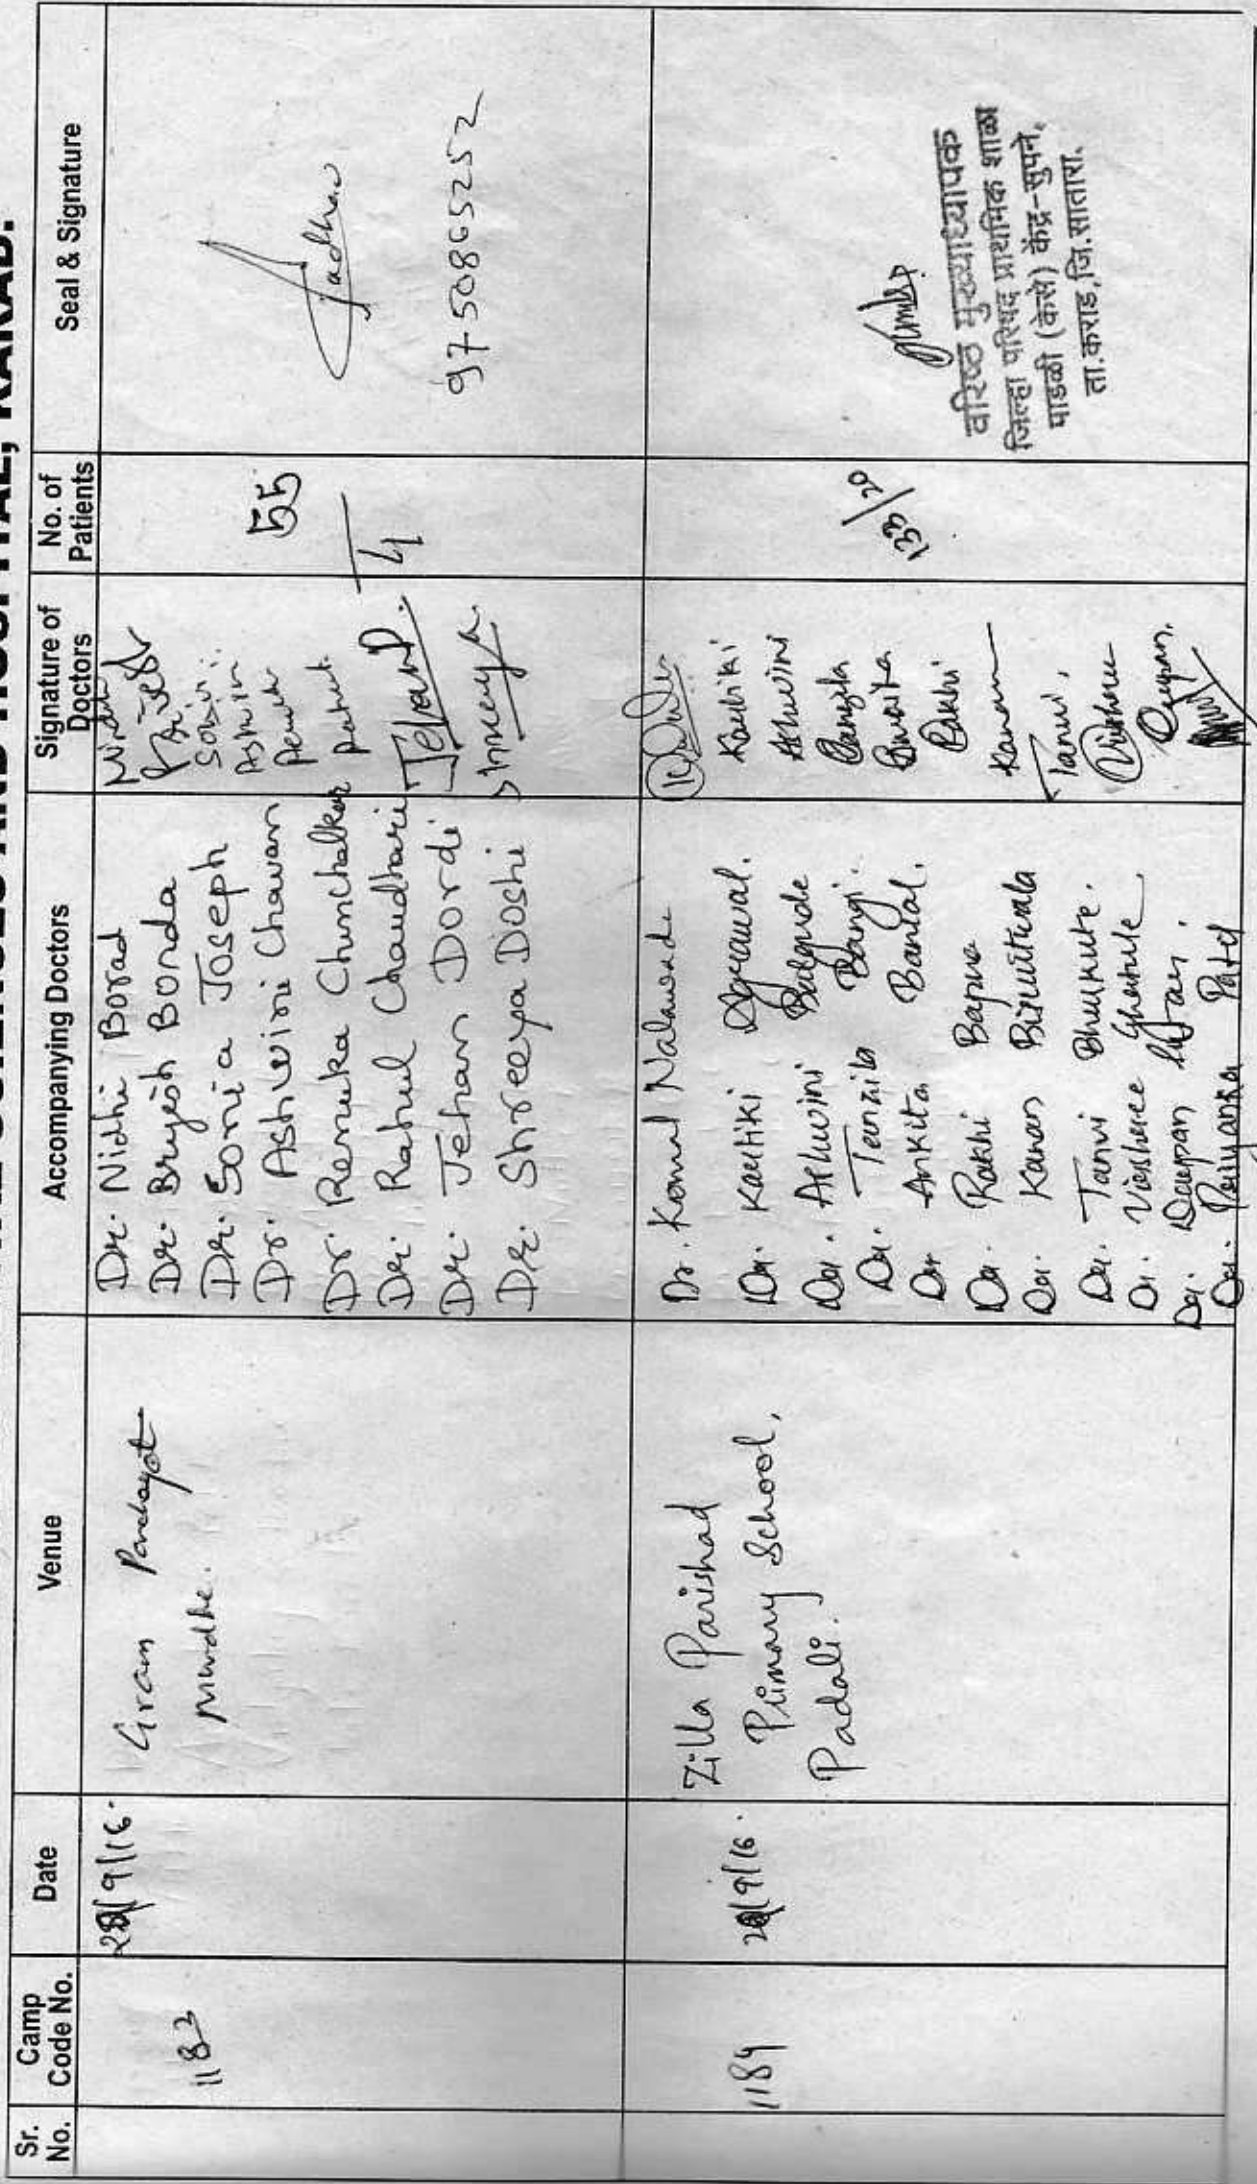 AND HOSPITAL, KARAD.
Sr. No.
Camp Code No.
Date
Venue
Accompanying Doctors
Signature of Doctors
No. of Patients
Seal & Signature
1183
28/9/16.
Gram Panchayat
Mundhe.
Dr. Nidhi Borad
Dr. Bryesh Bonda
Dr. Sonia Joseph
Dr. Ashwini Chavan
Dr. Renuka Chinchalkar
Dr. Rahul Chaudhari
Dr. Jehan Dordi
Dr. Shreeya Doshi
Nidhi
Ashwini
Rahul
JehanD.
Shreeya
55
4
Jadhav
9750865252
1184
/9/16.
Zilla Parishad
Primary School,
Padali.
Dr. Komal Nalawade
Dr. Kartiki Agrawal.
Dr. Ashwini Balgude
Dr. Tanzila Bangi.
Dr Ankita Bantal.
Dr. Rakhi Bapna
Dr. Kanan Birutiwala
Dr. Tanvi Bhumkute.
Dr. Vaishnee Ghantule
Dr. Darpan
Dr. Priyanka Patel
Kartiki
Ashwini
Rakhi
Kanan
Tanvi.
133/20
वरिष्ठ मुख्याध्यापक
जिल्हा परिषद प्राथमिक शाळा
पाडळी (केसे) केंद्र-सुपने,
ता.कराड,जि.सातारा.